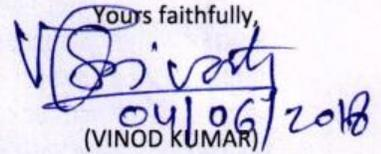 Yours faithfully,
04/06/2018
(VINOD KUMAR)